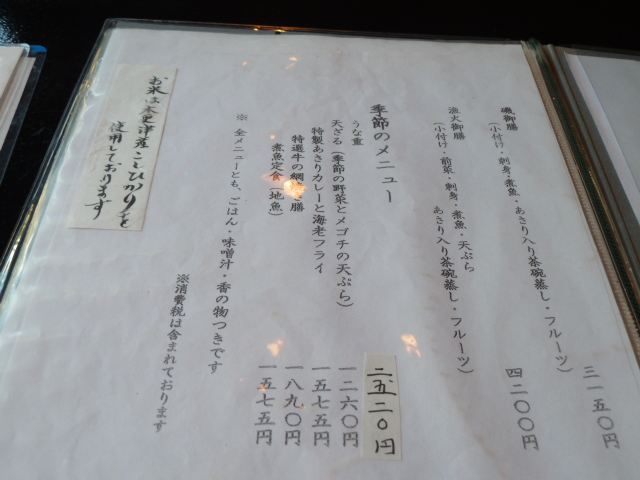 磯御膳
(小付け・刺身・煮魚・あさり入り茶碗蒸し・フルーツ)
三一五〇円
漁火御膳
(小付け・前菜・刺身・煮魚・天ぷら
あさり入り茶碗蒸し・フルーツ)
四二〇〇円
季節のメニュー
うな重
二、五二〇円
天ざる(季節の野菜とメゴチの天ぷら)
一二六〇円
特製あさりカレーと海老フライ
一五七五円
特選牛の網焼き膳
一八九〇円
煮魚定食(地魚)
一五七五円
※ 全メニューとも、ごはん・味噌汁・香の物つきです
※消費税は含まれております
お米は木更津産こしひかりを
使用しております